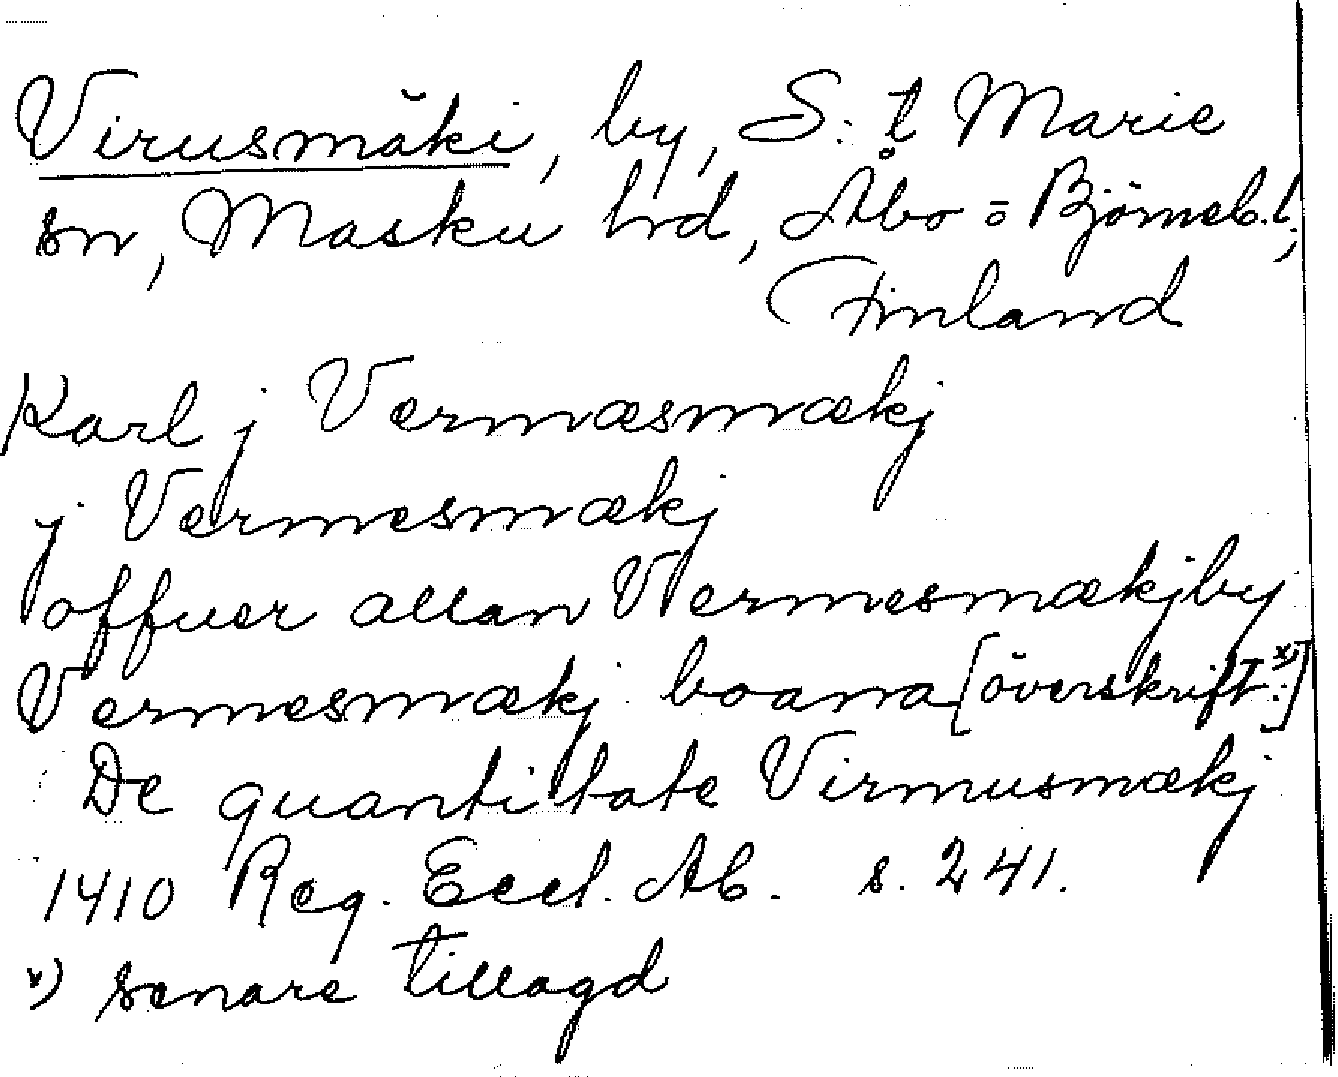 Virusmäki, by, S:t Marie
sn, Masku hrd, Åbo = Björneb. l;
Finland
Karl j Vermæsmækj
j Vermesmækj
offuer allan Vermesmækjby
Vermesmækj boana [överskrift.x)]
De quantitate Virmusmækj
1410 Reg. Eccl. Ab. s. 241.
x) senare tillagd